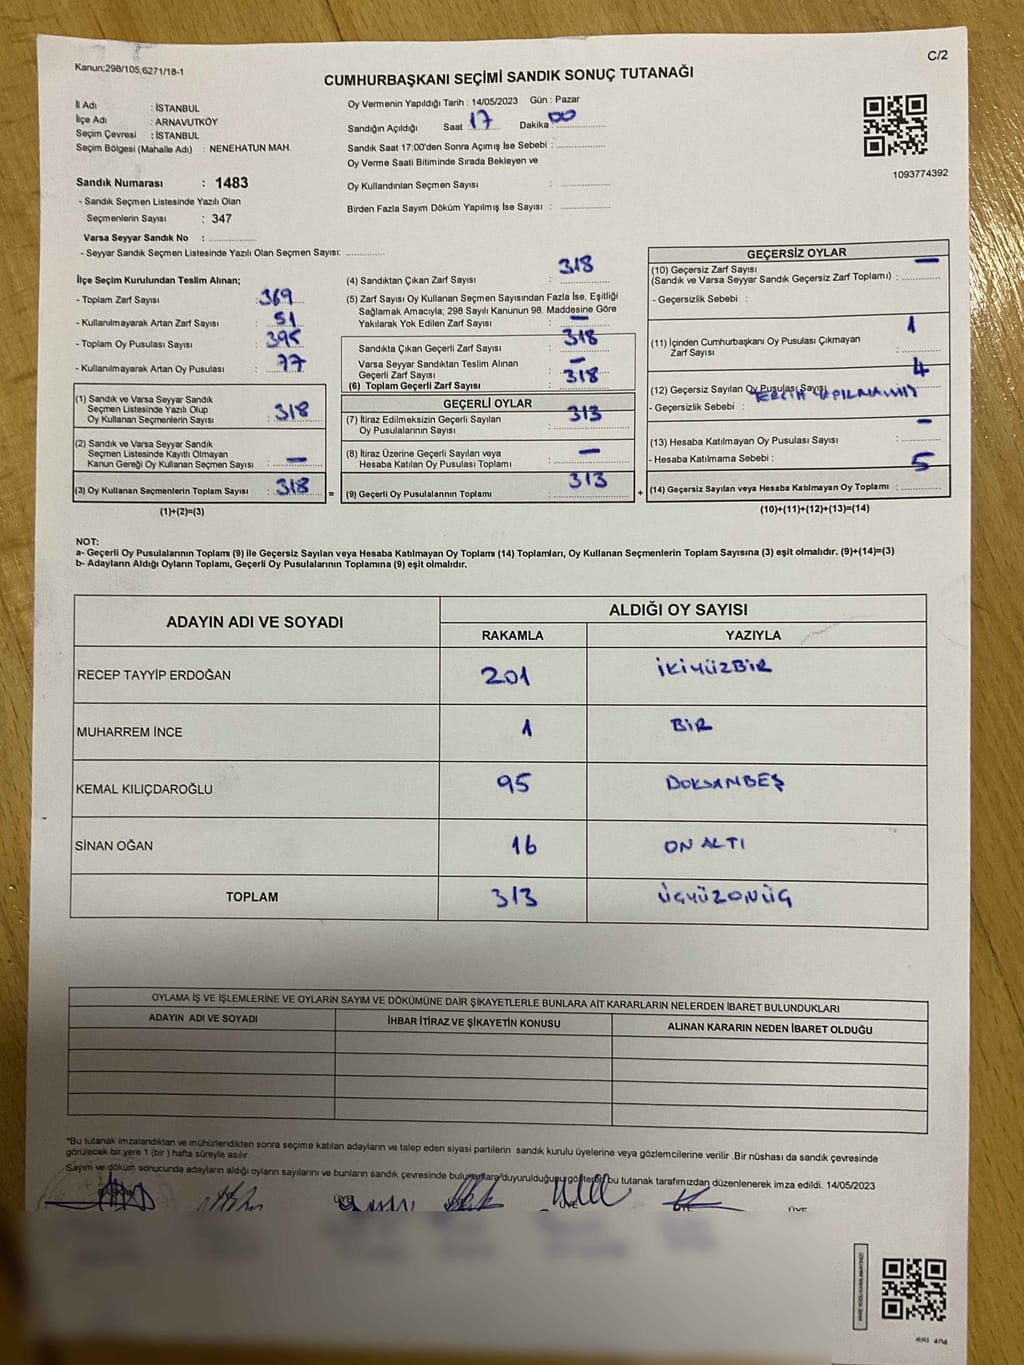 Kanun;298/105,6271/18-1
C/2
CUMHURBAŞKANI SEÇİMİ SANDIK SONUÇ TUTANAĞI
İl Adı : İSTANBUL
İlçe Adı : ARNAVUTKÖY
Seçim Çevresi : İSTANBUL
Seçim Bölgesi (Mahalle Adı) : NENEHATUN MAH.
Sandık Numarası : 1483
- Sandık Seçmen Listesinde Yazılı Olan
Seçmenlerin Sayısı : 347
Varsa Seyyar Sandık No :
- Seyyar Sandık Seçmen Listesinde Yazılı Olan Seçmen Sayısı:
Oy Vermenin Yapıldığı Tarih : 14/05/2023 Gün : Pazar
Sandığın Açıldığı Saat : 17 Dakika : 00
Sandık Saat 17:00'den Sonra Açımış İse Sebebi :
Oy Verme Saati Bitiminde Sırada Bekleyen ve
Oy Kullandırılan Seçmen Sayısı :
Birden Fazla Sayım Döküm Yapılmış İse Sayısı :
1093774392
İlçe Seçim Kurulundan Teslim Alınan;
- Toplam Zarf Sayısı : 369
- Kullanılmayarak Artan Zarf Sayısı : 51
- Toplam Oy Pusulası Sayısı : 395
- Kullanılmayarak Artan Oy Pusulası : 77
(1) Sandık ve Varsa Seyyar Sandık
Seçmen Listesinde Yazılı Olup
Oy Kullanan Seçmenlerin Sayısı : 318
(2) Sandık ve Varsa Seyyar Sandık
Seçmen Listesinde Kayıtlı Olmayan
Kanun Gereği Oy Kullanan Seçmen Sayısı : —
(3) Oy Kullanan Seçmenlerin Toplam Sayısı : 318
(1)+(2)=(3)
=
(4) Sandıktan Çıkan Zarf Sayısı : 318
(5) Zarf Sayısı Oy Kullanan Seçmen Sayısından Fazla İse, Eşitliği
Sağlamak Amacıyla; 298 Sayılı Kanunun 98. Maddesine Göre
Yakılarak Yok Edilen Zarf Sayısı : —
Sandıkta Çıkan Geçerli Zarf Sayısı : 318
Varsa Seyyar Sandıktan Teslim Alınan
Geçerli Zarf Sayısı : —
(6) Toplam Geçerli Zarf Sayısı : 318
GEÇERLİ OYLAR
(7) İtiraz Edilmeksizin Geçerli Sayılan
Oy Pusulalarının Sayısı : 313
(8) İtiraz Üzerine Geçerli Sayılan veya
Hesaba Katılan Oy Pusulası Toplamı : —
(9) Geçerli Oy Pusulalarının Toplamı : 313
+
GEÇERSİZ OYLAR
(10) Geçersiz Zarf Sayısı
(Sandık ve Varsa Seyyar Sandık Geçersiz Zarf Toplamı) : —
- Geçersizlik Sebebi :
(11) İçinden Cumhurbaşkanı Oy Pusulası Çıkmayan
Zarf Sayısı : 1
(12) Geçersiz Sayılan Oy Pusulası Sayısı : 4
- Geçersizlik Sebebi : TERCİH YAPILMAMIŞ
(13) Hesaba Katılmayan Oy Pusulası Sayısı : —
- Hesaba Katılmama Sebebi :
(14) Geçersiz Sayılan veya Hesaba Katılmayan Oy Toplamı : 5
(10)+(11)+(12)+(13)=(14)
NOT:
a- Geçerli Oy Pusulalarının Toplamı (9) ile Geçersiz Sayılan veya Hesaba Katılmayan Oy Toplamı (14) Toplamları, Oy Kullanan Seçmenlerin Toplam Sayısına (3) eşit olmalıdır. (9)+(14)=(3)
b- Adayların Aldığı Oyların Toplamı, Geçerli Oy Pusulalarının Toplamına (9) eşit olmalıdır.
ADAYIN ADI VE SOYADI ALDIĞI OY SAYISI
RAKAMLA YAZIYLA
RECEP TAYYİP ERDOĞAN 201 İKİYÜZBİR
MUHARREM İNCE 1 BİR
KEMAL KILIÇDAROĞLU 95 DOKSANBEŞ
SİNAN OĞAN 16 ON ALTI
TOPLAM 313 ÜÇYÜZONÜÇ
OYLAMA İŞ VE İŞLEMLERİNE VE OYLARIN SAYIM VE DÖKÜMÜNE DAİR ŞİKAYETLERLE BUNLARA AİT KARARLARIN NELERDEN İBARET BULUNDUKLARI
ADAYIN ADI VE SOYADI İHBAR İTİRAZ VE ŞİKAYETİN KONUSU ALINAN KARARIN NEDEN İBARET OLDUĞU
"Bu tutanak imzalandıktan ve mühürlendikten sonra seçime katılan adayların ve talep eden siyasi partilerin sandık kurulu üyelerine veya gözlemcilerine verilir .Bir nüshası da sandık çevresinde
görülecek bir yere 1 (bir ) hafta süreyle asılır.
Sayım ve döküm sonucunda adayların aldığı oyların sayılarını ve bunların sandık çevresinde bulunanlara duyurulduğunu gösterir bu tutanak tarafımızdan düzenlenerek imza edildi. 14/05/2023
BAŞKAN ÜYE ÜYE ÜYE ÜYE ÜYE